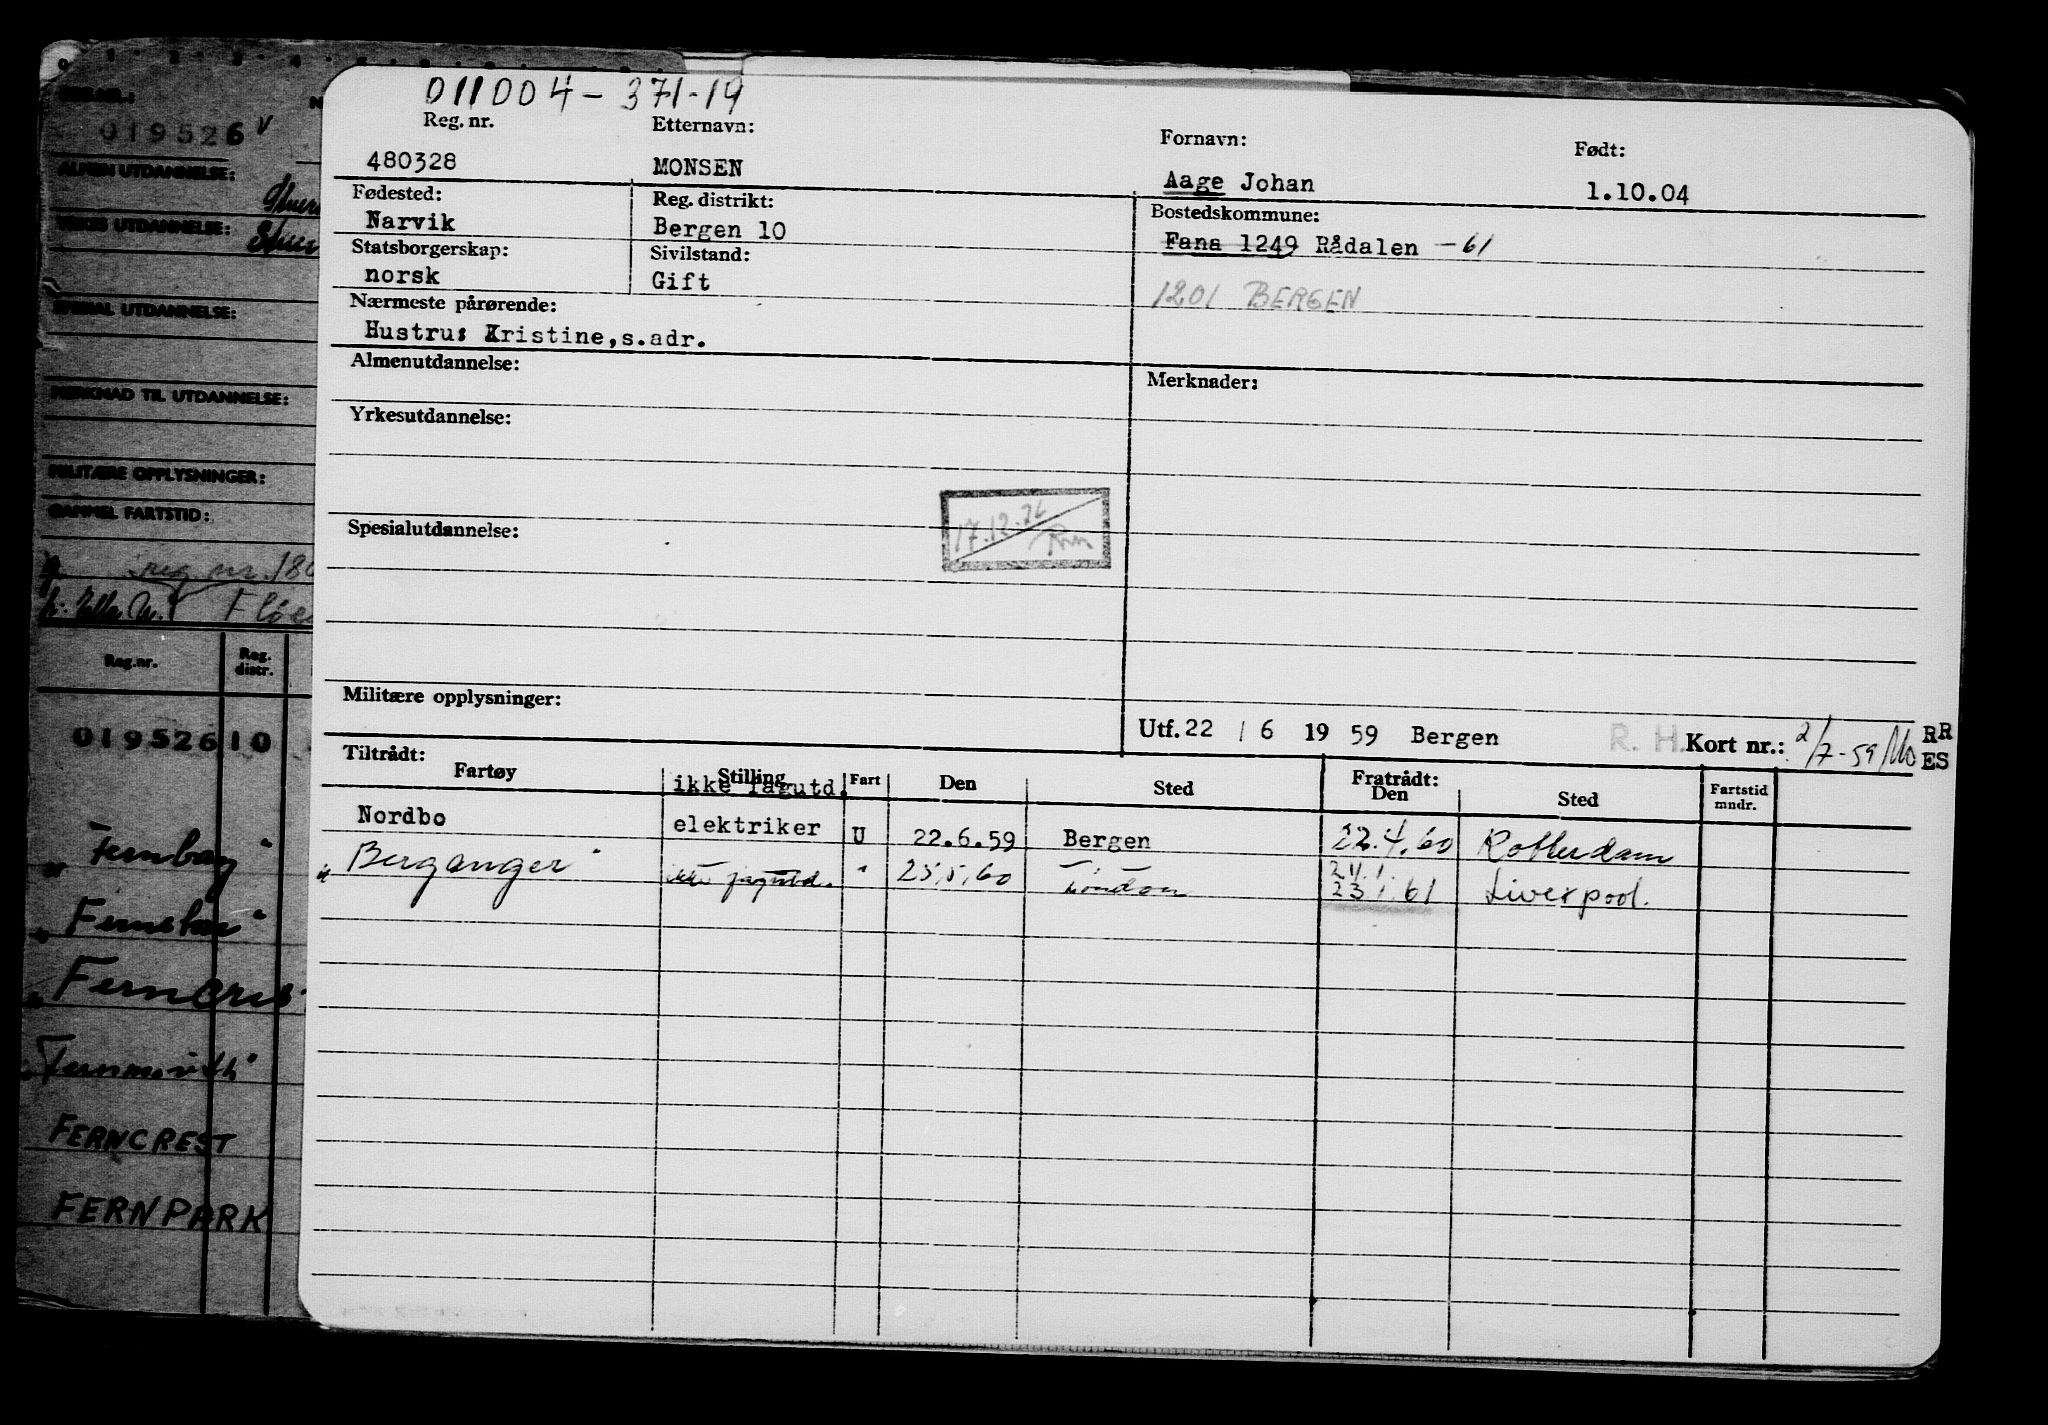 011004-371-19
Reg. nr.
480328
Etternavn:
MONSEN
Fornavn:
Aage Johan
Født:
1.10.04
Fødested:
Narvik
Reg. distrikt:
Bergen 10
Bostedskommune:
Fana 1249 Rådalen -61
1201 BERGEN
Statsborgerskap:
norsk
Sivilstand:
Gift
Nærmeste pårørende:
Hustru: Kristine,s.adr.
Almenutdannelse:
Merknader:
Yrkesutdannelse:
Spesialutdannelse:
17.12.
Militære opplysninger:
Utf. 22 / 6 19 59 Bergen
R. H. Kort nr.: 2/7-59/Mo RR ES
Tiltrådt:
Fartøy Stilling Fart Den Sted Fratrådt: Den Sted Fartstid mndr.
ikke fagutd.
Nordbo elektriker U 22.6.59 Bergen 22.4.60 Rotterdam
"Berganger" ikke fagutd. " 25.5.60 London 24.1. 23.1.61 Liverpool.
019526 V
ALMEN UTDANNELSE:
YRKES UTDANNELSE:
SPESIAL UTDANNELSE:
MERKNAD TIL UTDANNELSE:
MILITÆRE OPPLYSNINGER:
GAMMEL FARTSTID:
reg nr. 180
Reg.nr. Reg. distr.
019526 10
"Fernbay"
"Fernstar"
FERNCREST
FERNPARK